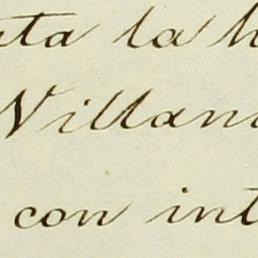 ata la h
Villan
con int